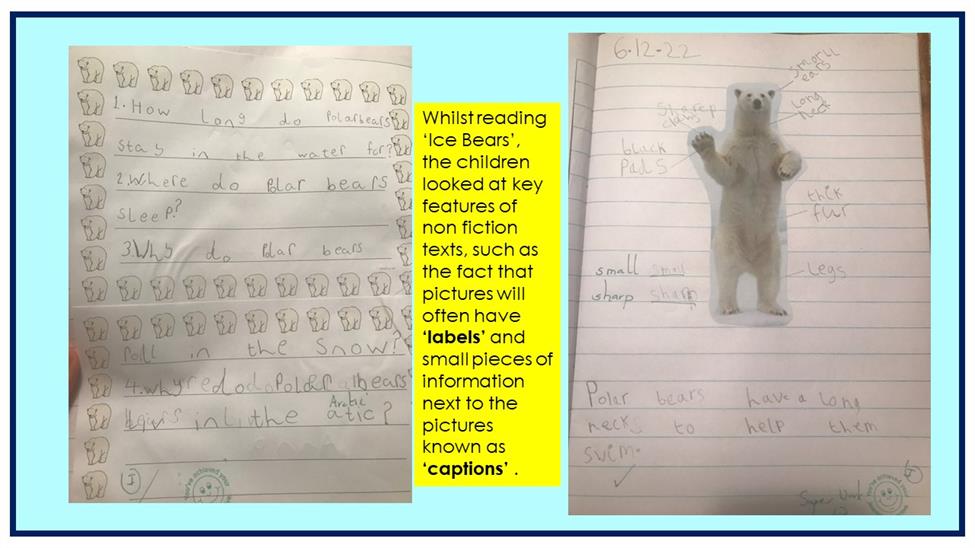 1. How Long do Polarbears
Stay in the water for?
2. Where do Polar bears
sleep?
3. Why do Polar bears
roll in the snow?
4. why do Polar bears
in the Arctic
atic?
I
you've achieved your
Whilst reading
‘Ice Bears’,
the children
looked at key
features of
non fiction
texts, such as
the fact that
pictures will
often have
‘labels’ and
small pieces of
information
next to the
pictures
known as
‘captions’ .
6-12-22
small
ears
Long
neck
black
Pads
thik
fur
Legs
small small
sharp sharp
Polar bears have a Long
necks to help them
swim.
Super Work
I